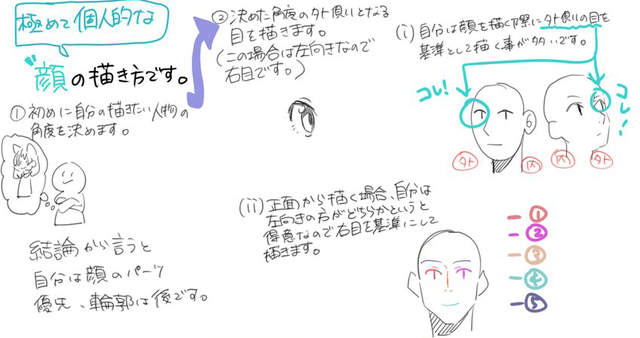 極めて個人的な
"顔の描き方です。
①初めに自分の描きたい人物の
角度を決めます。
結論から言うと
自分は顔のパーツ
優先、輪郭は後です。
②決めた角度の外側となる
目を描きます。
(この場合は左向きなので
右目です。)
(i)自分は顔を描く際に外側の目を
基準として描く事が多いです。
コレ!
コレ!
外
内
内
外
(ii)正面から描く場合、自分は
左向きの方がどちらかというと
得意なので右目を基準にして
描きます。
ー①
ー②
ー③
ー④
ー⑤